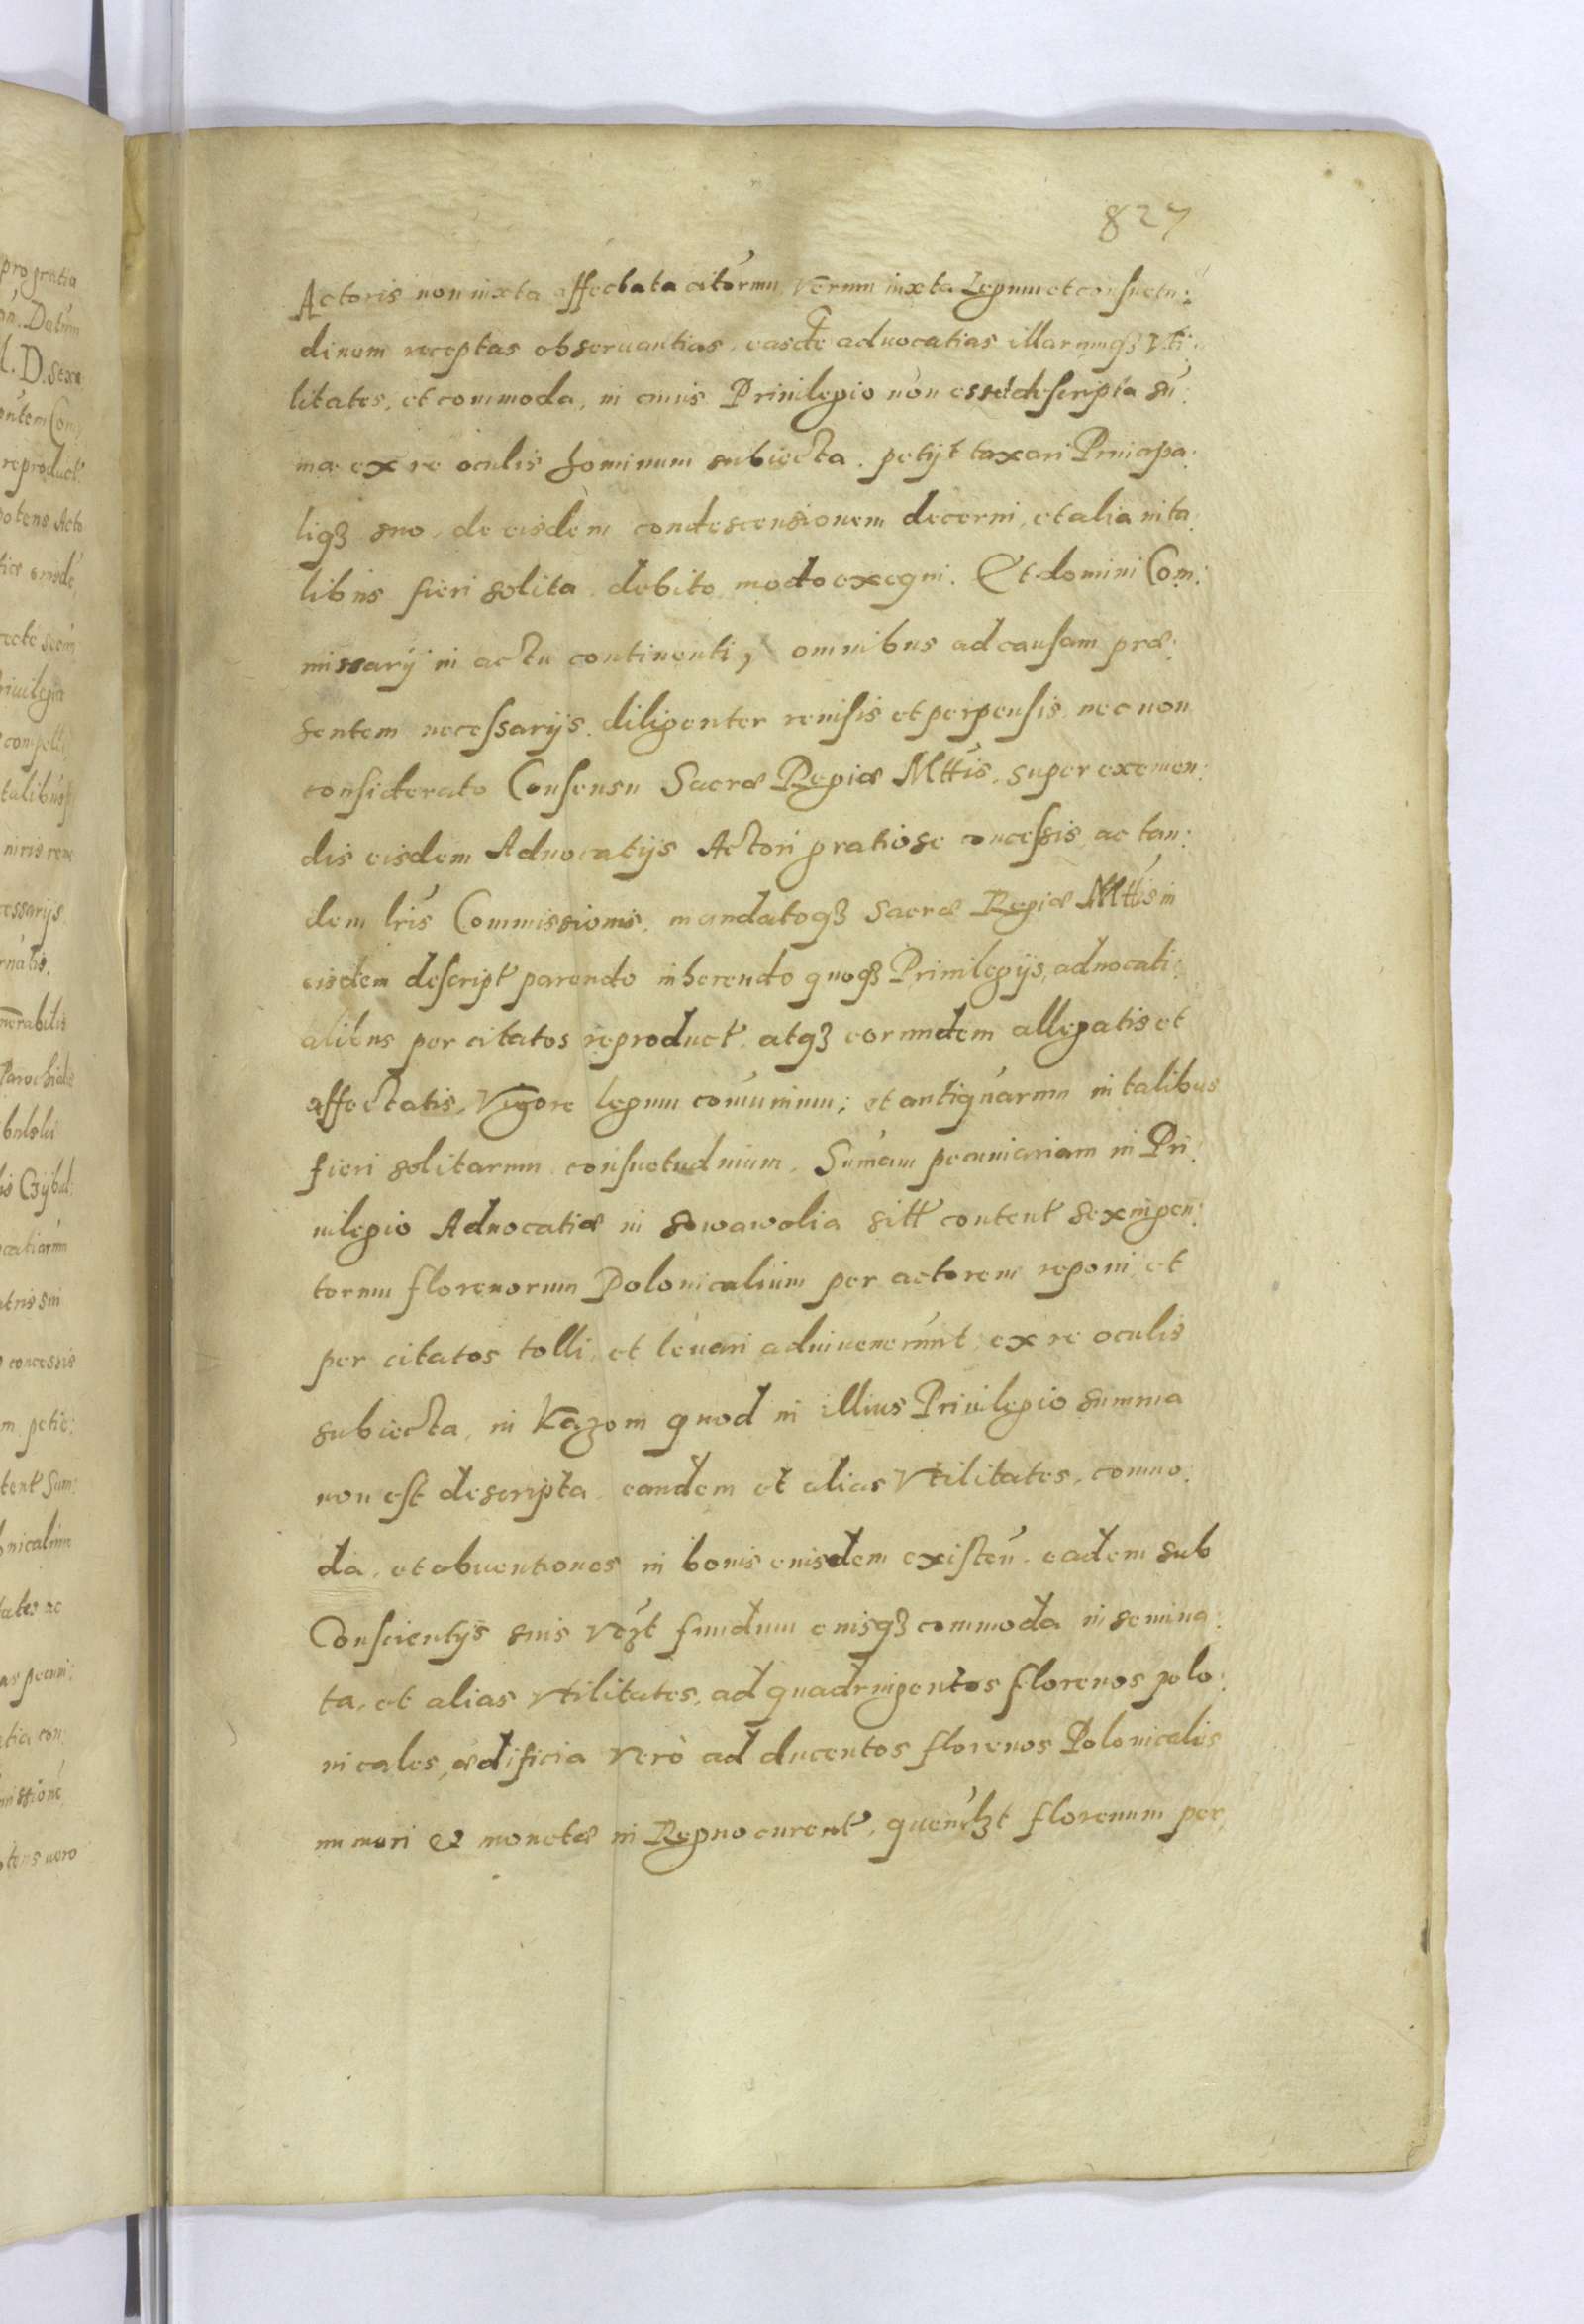 827
Actoris non iuxta affectata citorum, verum iuxta Legum et consuetu:
dinum receptas obseruantias, easdē aduocatias illarumqȝ vti:
litates, et commoda, in cuius Priuilegio non esset descripta sū:
ma ex re oculis hominum subiecta, petijt taxari Principa:
liqȝ suo, de eisdem condescensionem decerni, et alia in ta:
libus fieri solita debito modo exequi. Et domini Com:
missarÿ in actu continenti, omnibus ad causam præ:
sentem necessarijs diligenter reuisis et perpensis, nec non
considerato Consensu Sacræ Regiæ Mttis, super eximen:
dis eisdem Aduocatijs Actori gratiose concessis, ac tan:
dem Lris Commissionis, mandatoqȝ Sacræ Regiæ Mttis in
eisdem descript parendo inherendo quoqȝ Priuilegijs, aduocati:
alibus per citatos reproduct, atqȝ eorundem allegatis et
affectatis, Vigore legum comunium; et antiquarum in talibus
fieri solitarum consuetudinum, Sumam pecuniariam in Pri:
uilegio Aduocatiæ in Sowawolia sitt content sexingen:
torum florenorum Polonicalium per actorem reponi et
per citatos tolli, et leuari adinuenerunt, ex re oculis
subiecta, in Kazoni quod in illius Priuilegio summa
non est descripta, eandem et alias Vtilitates, commo:
da, et obuentiones in bonis euisdem existen, eadem sub
Conscientijs suis vȝt fundum euisqȝ commoda insemina:
ta, et alias Vtilitates, ad quadringentos florenos polo:
nicales, ædificia verò ad ducentos florenos Polonicales
numeri & monetæ in Regno curent, quemlȝt florenum per